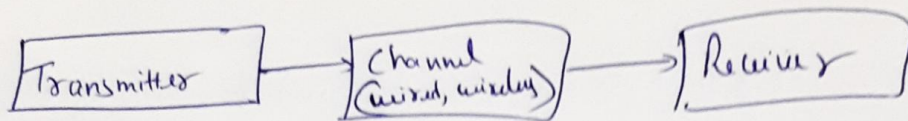 Transmitter
Channel
(wired, wireless)
Receiver